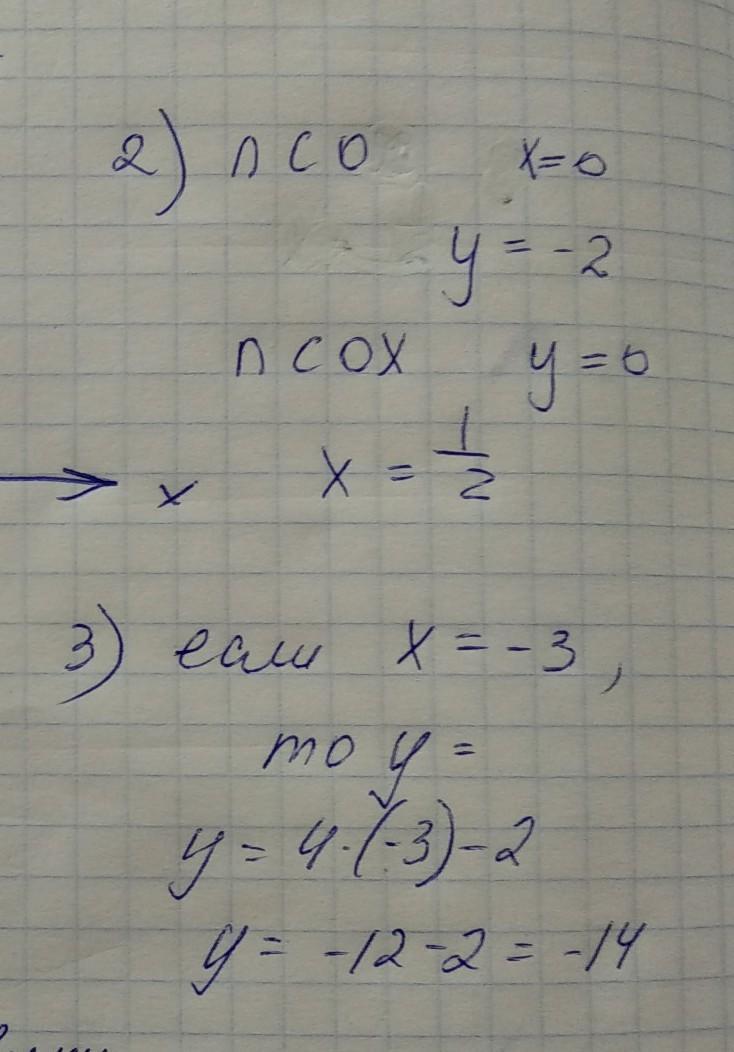 2) п с О x=0
y = -2
п с OX y=0
x x = 1/2
3) если x = -3,
то y =
y = 4·(-3)-2
y = -12-2 = -14